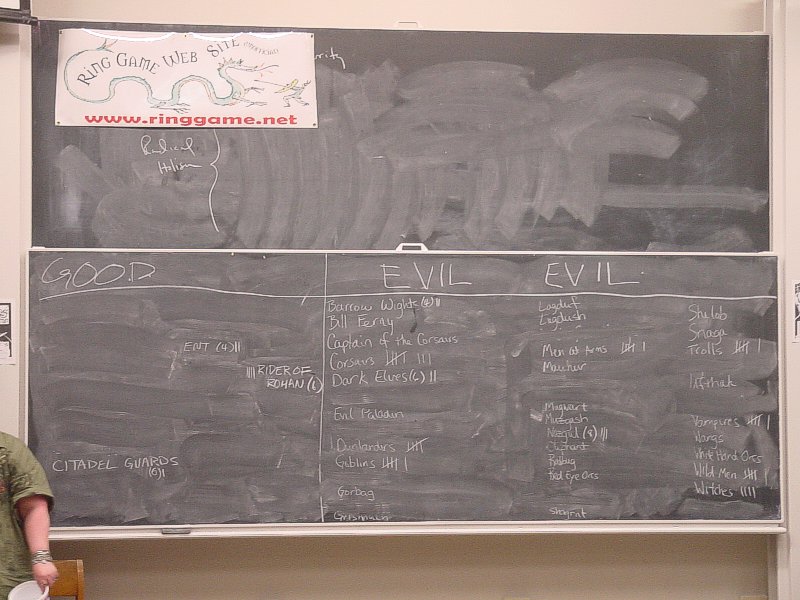 RING GAME WEB SITE
www.ringgame.net
Radical
Holism
GOOD
ENT (4) ||
|||| RIDER OF
ROHAN (6)
CITADEL GUARDS
EVIL
Barrow Wights (8) ||
Bill Ferny
Captain of the Corsairs
Corsairs 卌 |||
Dark Elves (6) ||
Evil Paladin
Dunlandirs 卌
Goblins 卌 |
Gorbag
EVIL
Lagduf
Lugdush
Men at Arms 卌 |
Mauhur
Muzgash
Nazgul (8) ||
Red Eye Orcs
Shagrat
Shelob
Snaga
Trolls 卌 |
Ufthak
Vampires 卌 |
Wargs
White Hand Orcs
Wild Men 卌 |
Witches ||||